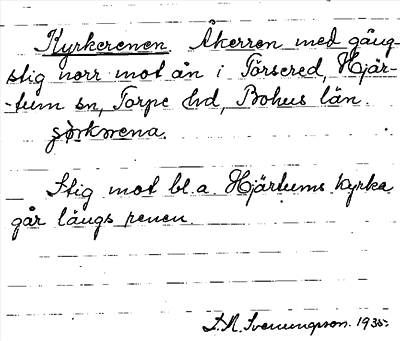 Kyrkerenen. Åkerren med gång-
stig norr mot ån i Torsered, Hjär-
-tum sn, Torpe hd, Bohus län.
Stig mot bl a Hjärtums kyrka
går längs renen.
S. M. Svenungsson. 1935.